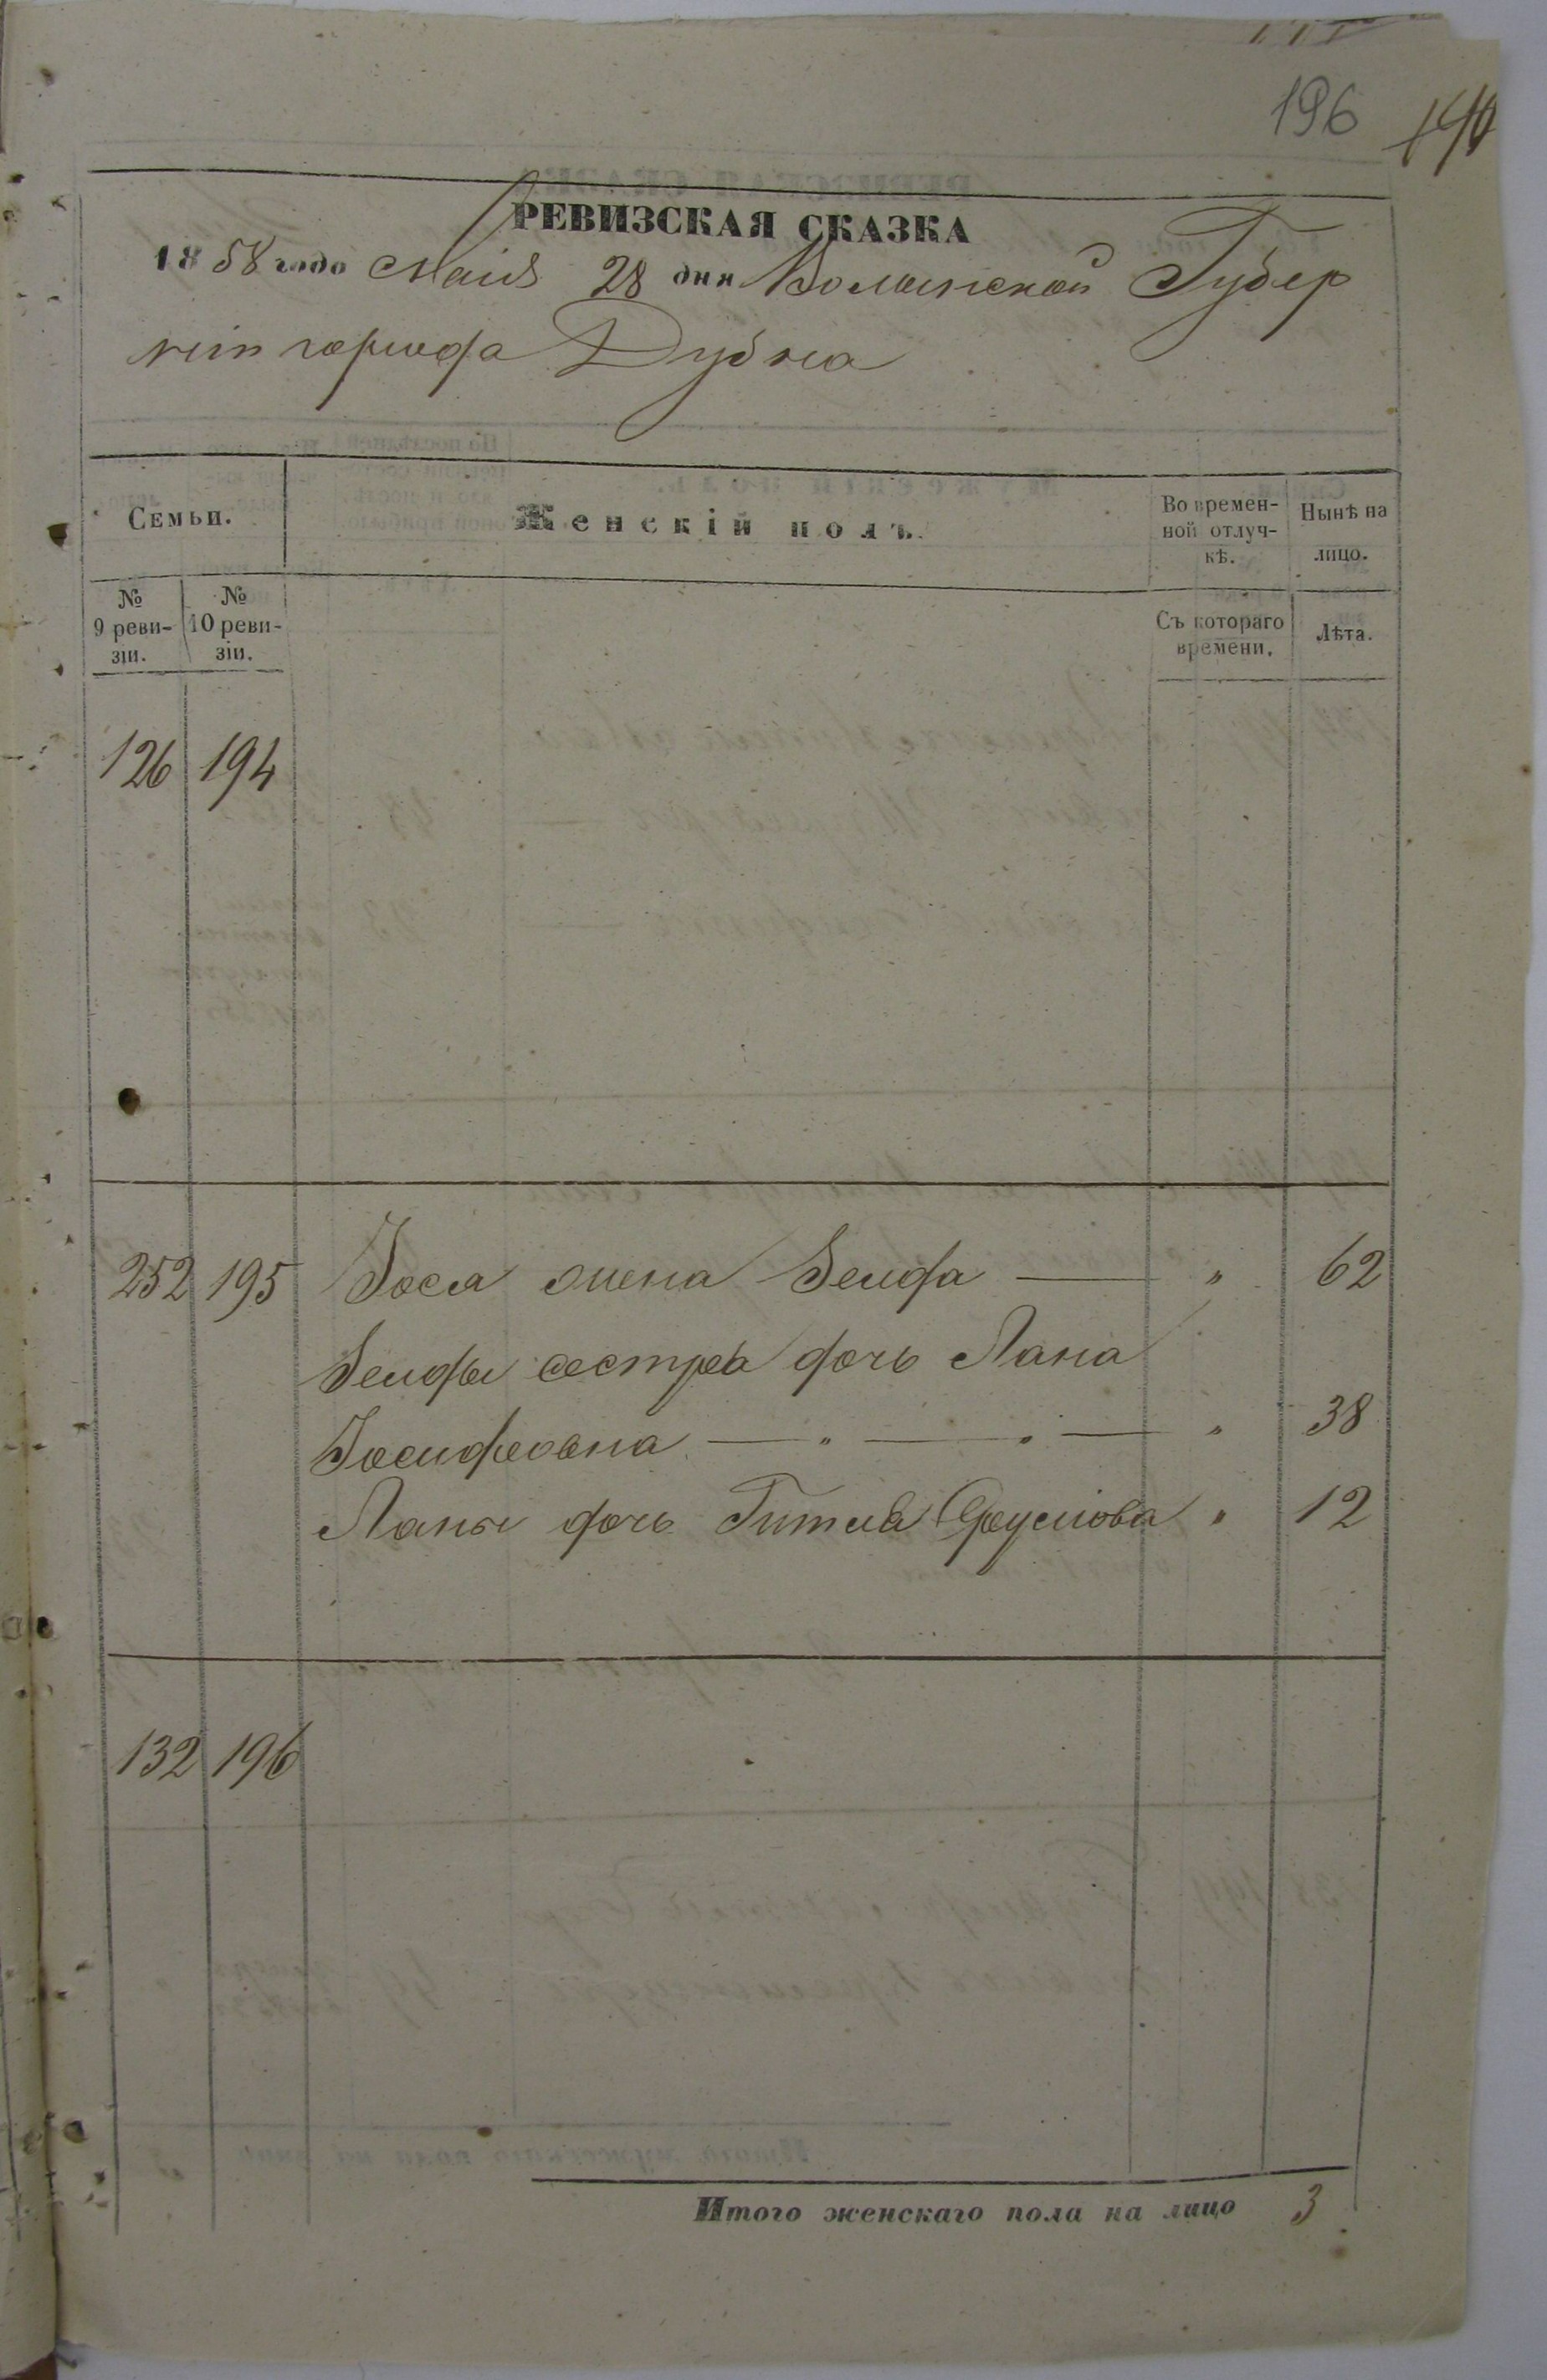 196
РЕВИЗСКАЯ СКАЗКА
1858 года Маія 28 дня Волынской Губер
ніи города Дубна
Семьи.
Женскій полъ.
Во времен-
ной отлуч-
кѣ.
Нынѣ на
лицо.
№
9 реви-
зіи.
№
10 реви-
зіи.
Съ котораго
времени.
Лѣта.
126 194
252 195 Іося жена Зельда — " 62
Зельды сестра дочь Лана
Іосифовна — " — " — " 38
Ланы дочь Гитля " 12
132 196
Итого женскаго пола на лицо 3